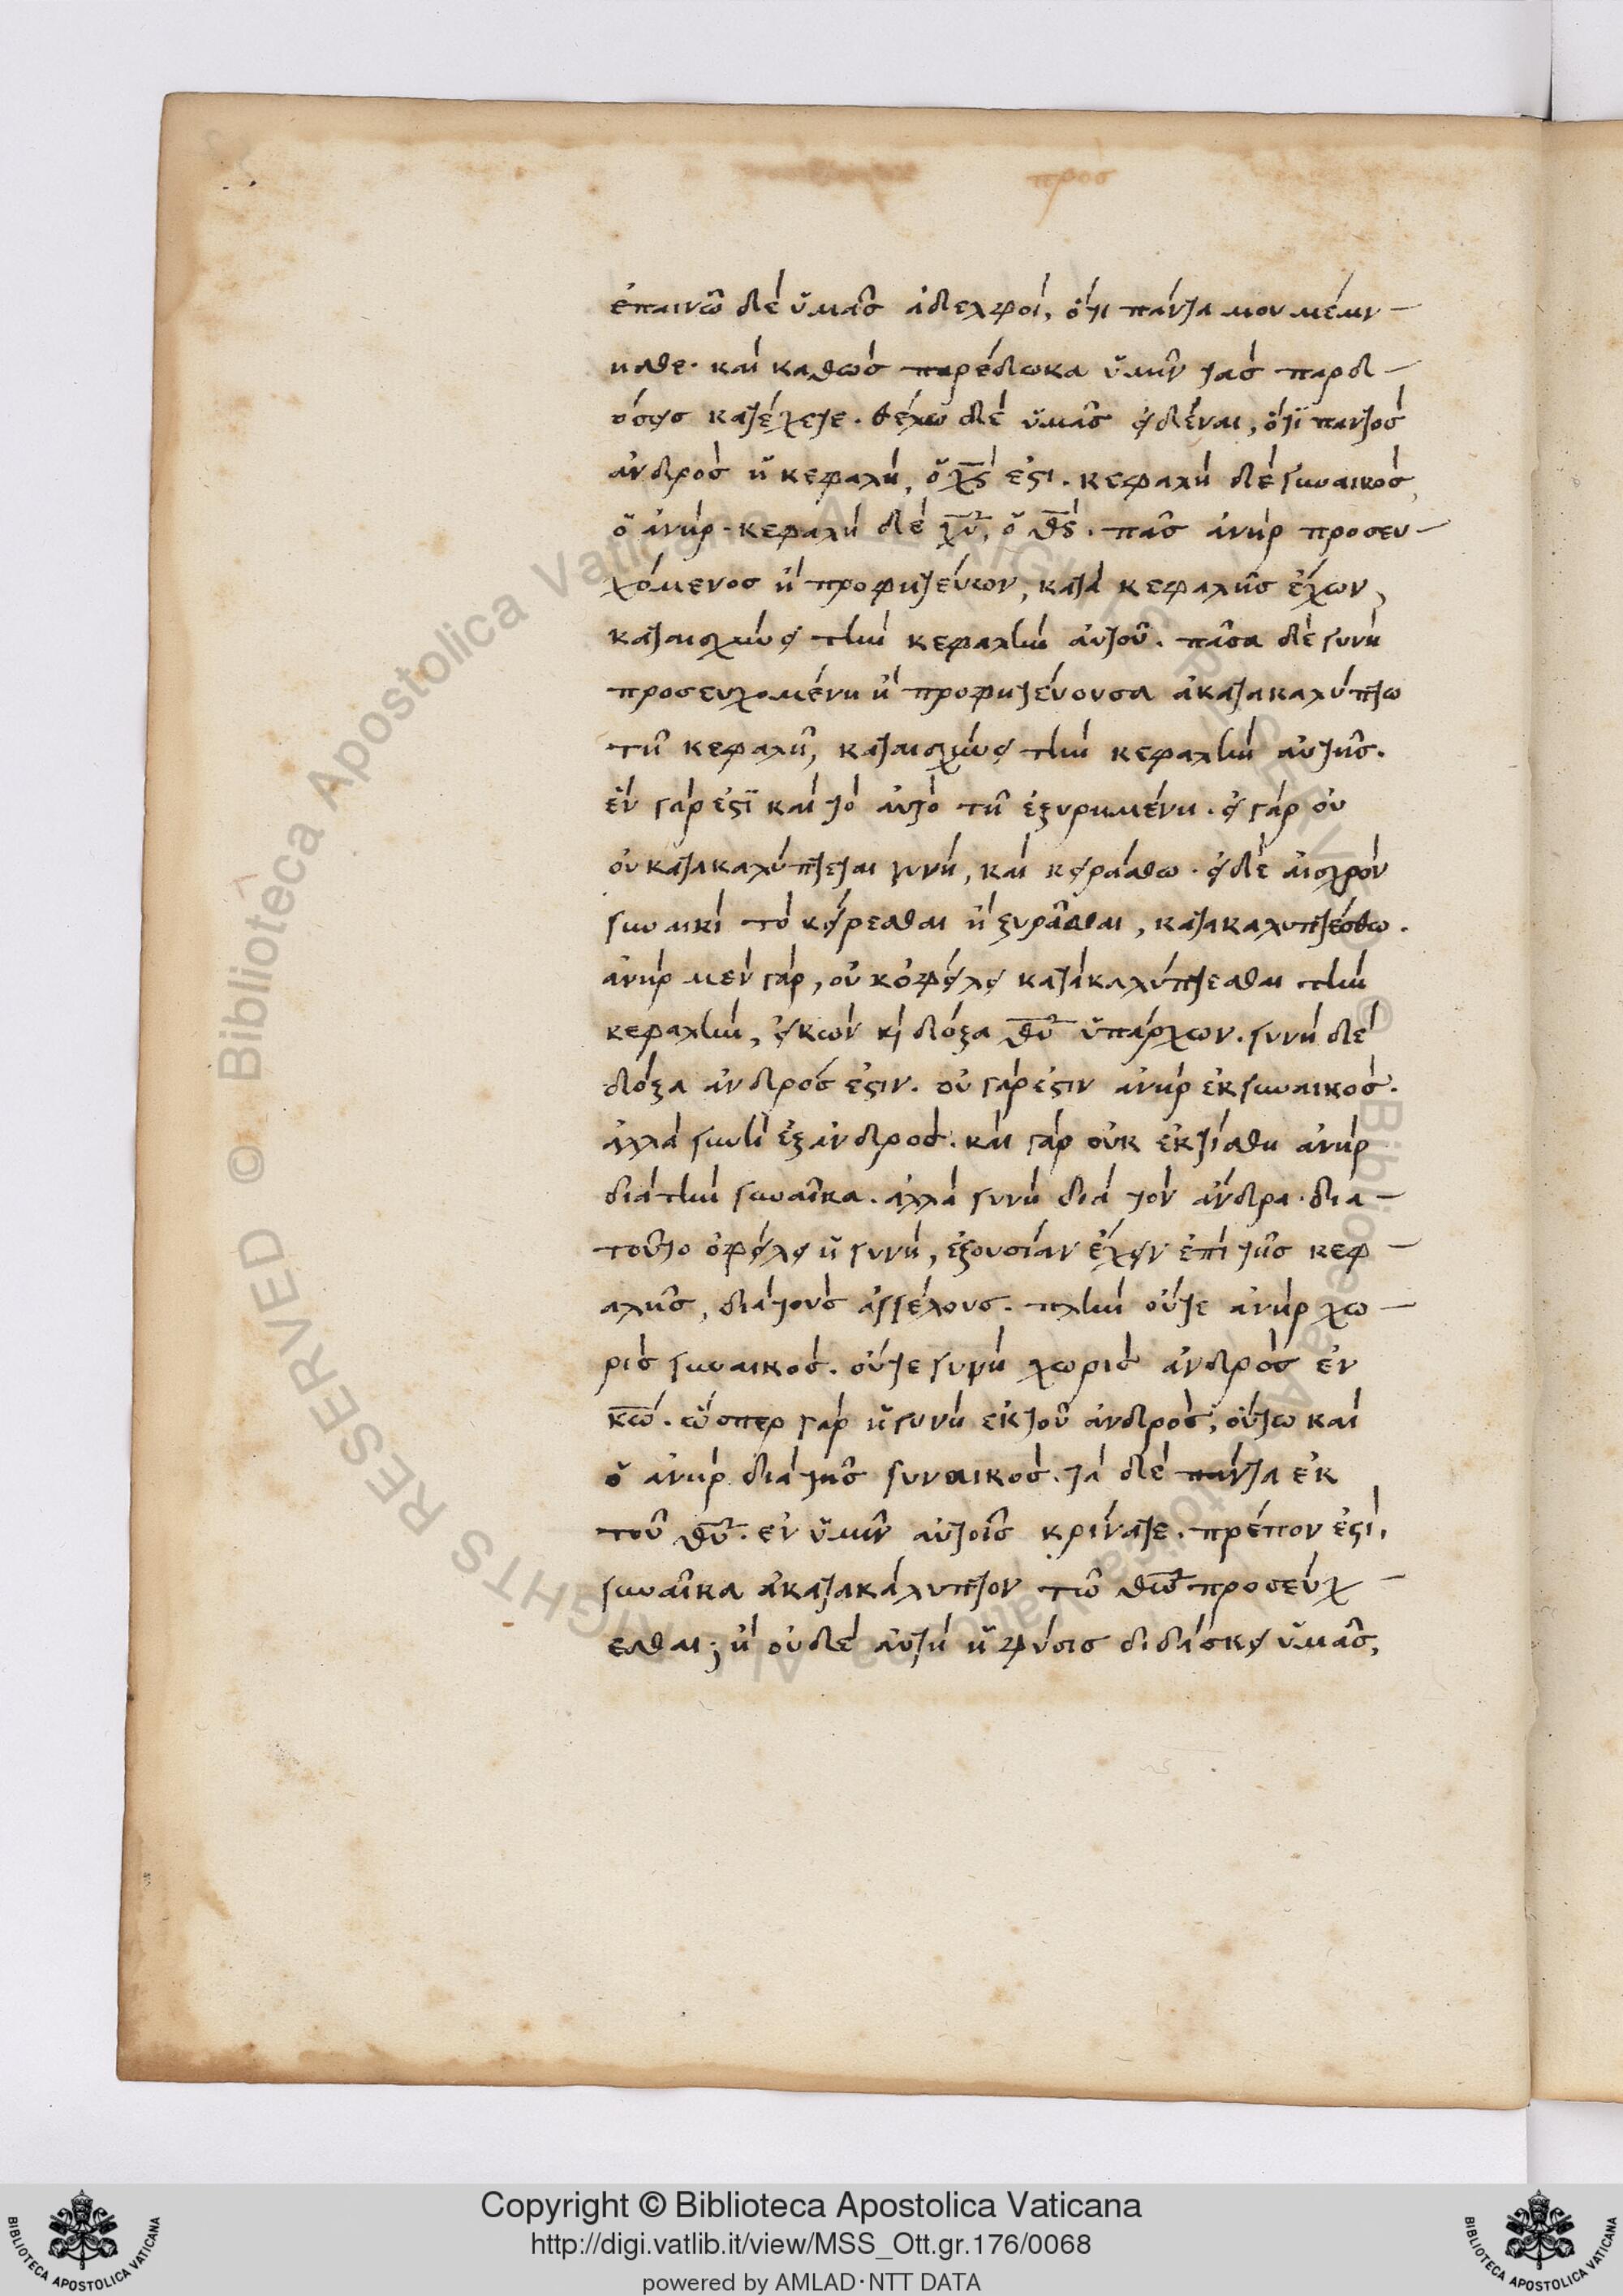 προσ
ἐπαινῶ δὲ ὑμᾶσ ἀδελφοί, ὅτι πάντα μου μέμν-
ησθε. καὶ καθὼσ παρέδωκα ὑμῖν τὰσ παρδ-
όσεισ κατέχετε. θέλω δὲ ὑμᾶσ εἰδέναι, ὅτι παντὸσ
ἀνδρὸσ ἡ κεφαλὴ, ὁ χς ἐστι. κεφαλὴ δὲ γυναικὸσ,
ὁ ἀνήρ. κεφαλὴ δὲ χυ, ὁ θς. πᾶσ ἀνὴρ προσευ-
χόμενοσ ἢ προφητεύων, κατὰ κεφαλῆσ ἔχων,
καταισχύνει τὴν κεφαλὴν αὐτοῦ. πᾶσα δὲ γυνὴ
προσευχομένη ἢ προφητεύουσα ἀκατακαλύπτω
τῆ κεφαλῆ, καταισχύνει τὴν κεφαλὴν αὐτῆσ.
ἓν γάρ ἐστι καὶ τὸ αὐτὸ τῆ ἐξυρημένη. εἰ γὰρ οὐ
οὐ κατακαλύπτεται γυνή, καὶ κειράσθω. εἰ δὲ αἰσχρὸν
γυναικὶ τὸ κείρεσθαι ἢ ξυρᾶσθαι, κατακαλυπτέσθω.
ἀνὴρ μὲν γὰρ, οὐκ ὀφείλει κατακαλύπτεσθαι τὴν
κεφαλὴν, εἰκὼν κὶ δόξα θυ ὑπάρχων. γυνὴ δὲ
δόξα ἀνδρόσ ἐστιν. οὐ γάρ ἐστιν ἀνὴρ ἐκ γυναικόσ.
ἀλλὰ γυνὴ ἐξ ἀνδρόσ. καὶ γὰρ οὐκ ἐκτίσθη ἀνὴρ
διὰ τὴν γυναῖκα. ἀλλὰ γυνὴ διὰ τὸν ἄνδρα. δια-
τοῦτο ὀφείλει ἡ γυνὴ, ἐξουσίαν ἔχειν ἐπὶ τῆσ κεφ-
αλῆσ, διὰ τοὺσ ἀγγέλουσ. πλὴν οὔτε ἀνὴρ χω-
ρὶσ γυναικόσ. οὔτε γυνὴ χωρὶσ ἀνδρὸσ ἐν
κω. ὥσπερ γὰρ ἡ γυνὴ ἐκ τοῦ ἀνδρόσ, οὕτω καὶ
ὁ ἀνὴρ διὰ τῆσ γυναικόσ. τὰ δὲ πάντα ἐκ
τοῦ θυ. ἐν ὑμῖν αὐτοῖσ κρίνατε. πρέπον ἐστὶ,
γυναῖκα ἀκατακάλυπτον τῶ θω προσεύχ-
εσθαι; ἢ οὐδὲ αὐτὴ ἡ φύσισ διδάσκει ὑμᾶσ,
© Biblioteca Apostolica Vaticana ALL RIGHTS RESERVED
© Biblioteca Apostolica Vaticana ALL RIGHTS RESERVED
Copyright © Biblioteca Apostolica Vaticana
http://digi.vatlib.it/view/MSS_Ott.gr.176/0068
powered by AMLAD·NTT DATA
BIBLIOTECA APOSTOLICA VATICANA
BIBLIOTECA APOSTOLICA VATICANA